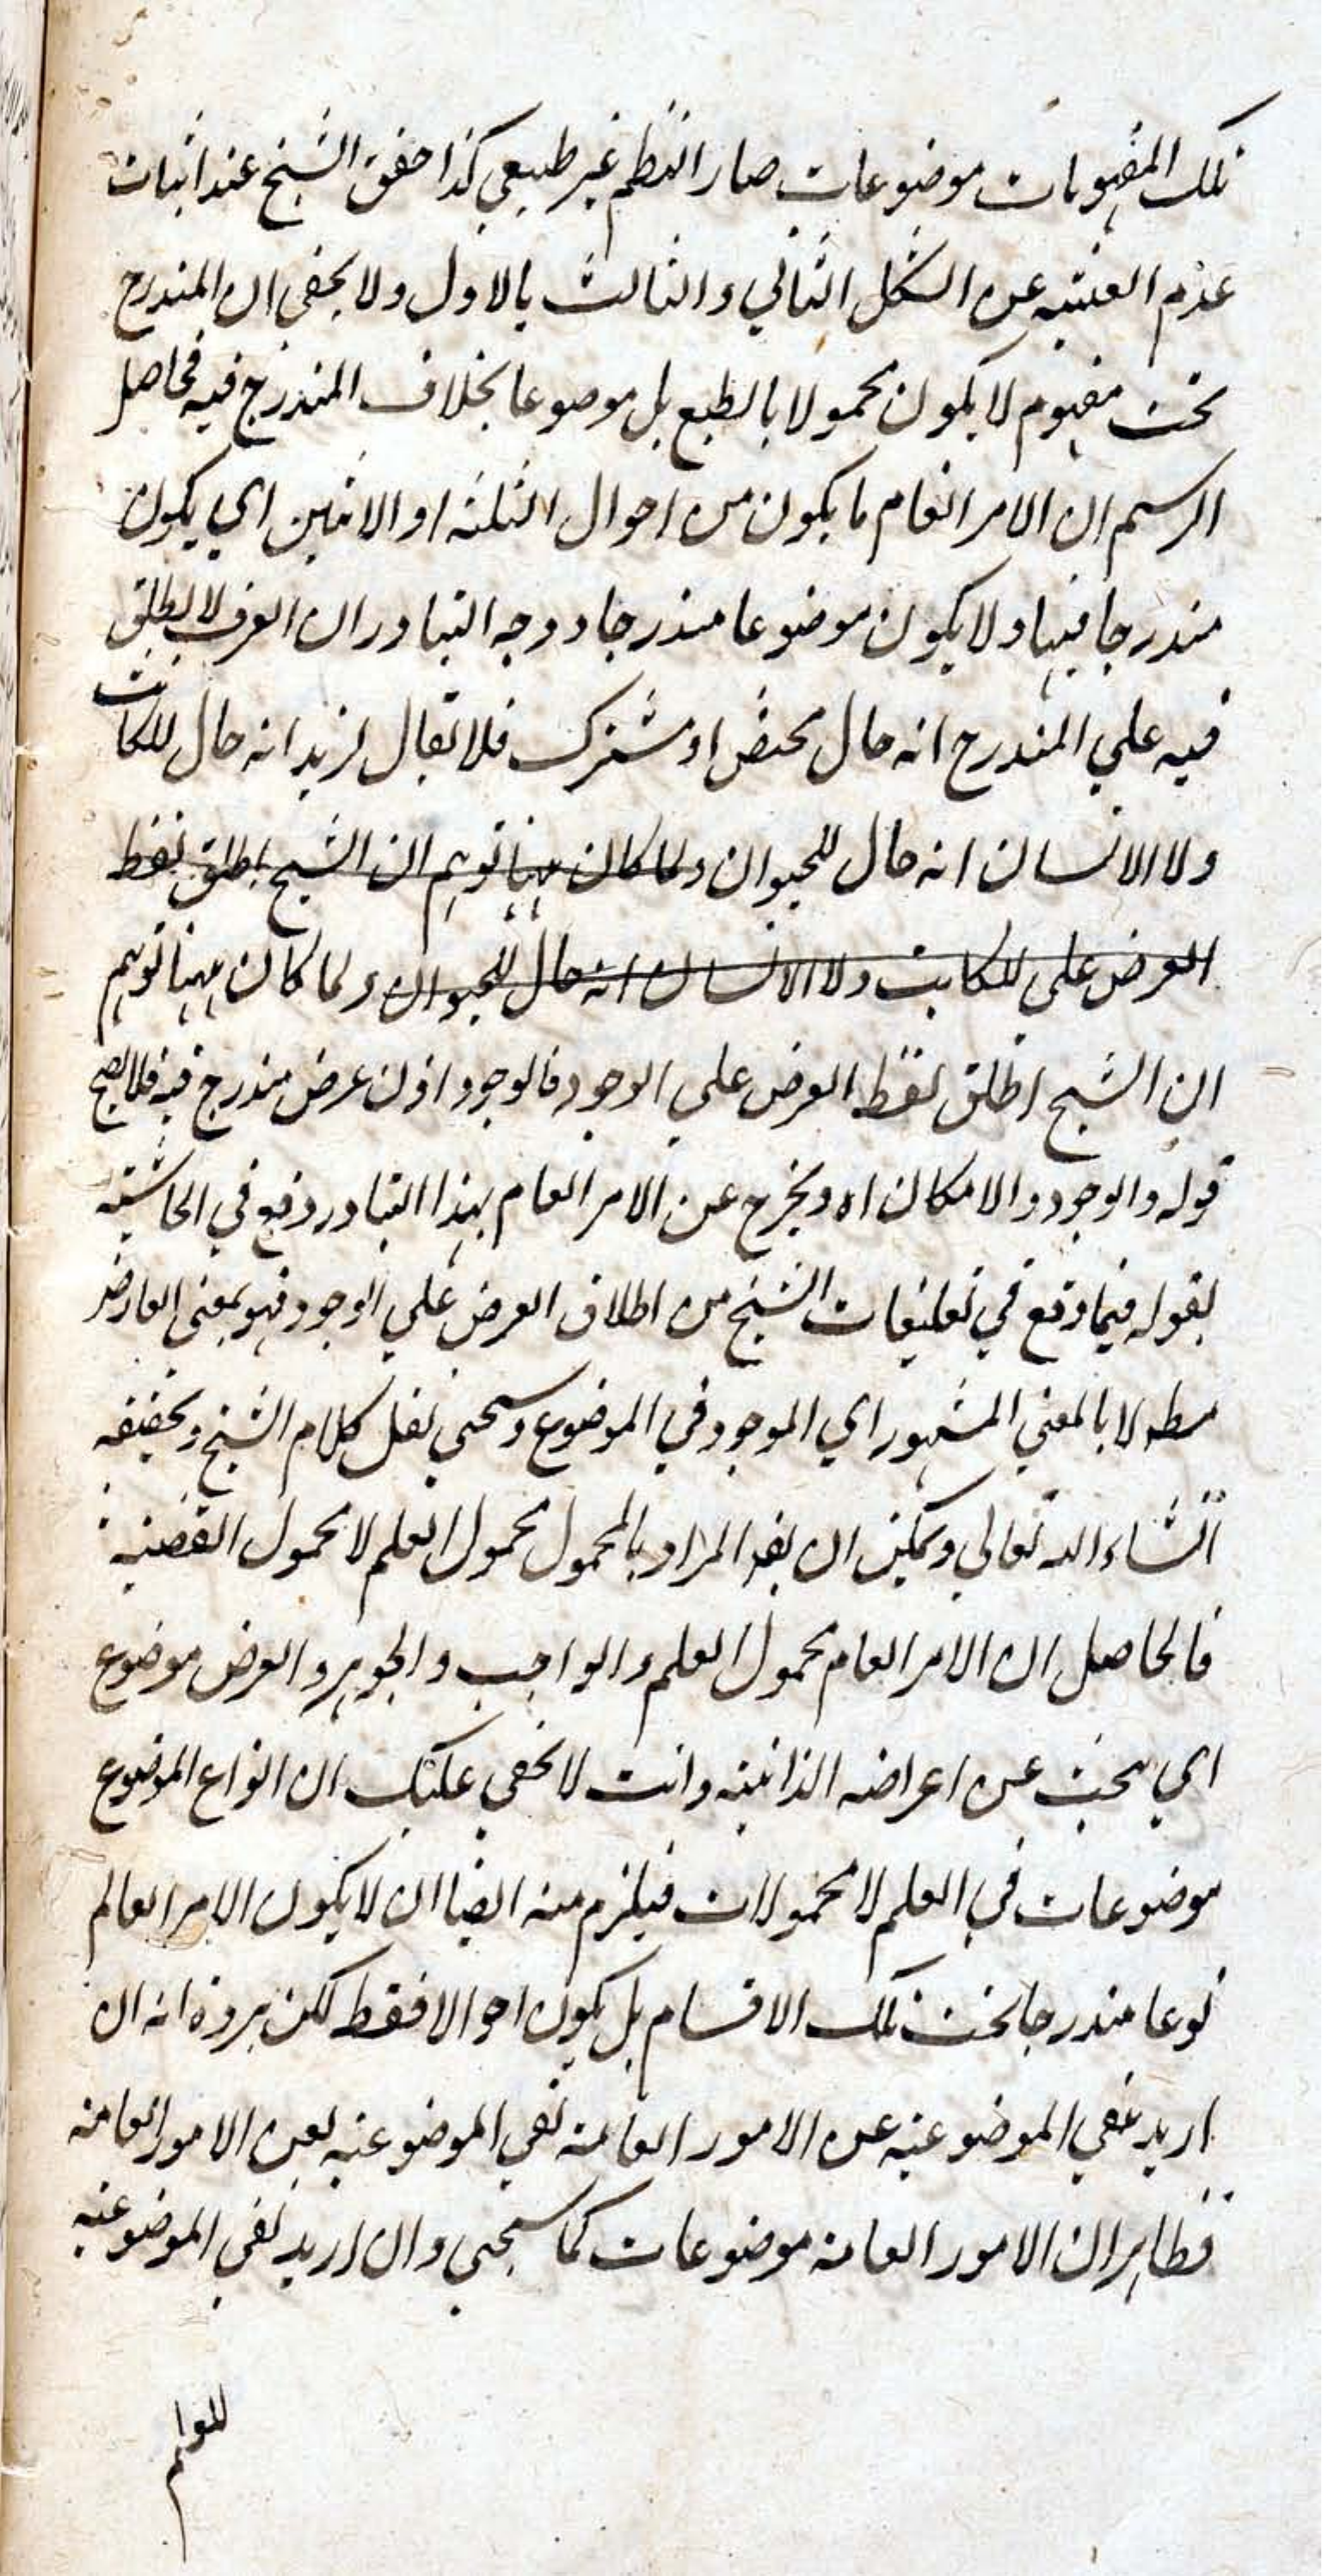 تلك المفهومات موضوعات صار النظم غير طبيعي كذا حقق الشيخ عند اثبات
عدم الغنية عن الشكل الثاني والثالث بالاول ولا يخفى ان المندرج
تحت مفهوم لا يكون محمولا بالطبع بل موضوعا بخلاف المندرج فيه فحاصل
الرسم ان الامر العام ما يكون من احوال الثلثة او الاثنين اي يكون
مندرجا فيها ولا يكون موضوعا مندرجا ووجه التبادر ان العرف لا يطلق
فيه علي المندرج انه حال مختص او مشترك فلا يقال لزيد انه حال للكاتب
ولا الانسان انه حال للحيوان ولما كان ههنا توهم ان الشيخ اطلق لفظ
العرض علي للكاتب ولا الانسان انه حال للحيوان ولما كان ههنا توهم
ان الشيخ اطلق لفظ العرض علي الوجود فالوجود اذن عرض مندرج فيه فلا يصح
قوله والوجود والامكان اه ويخرج عن الامر العام بهذا التبادر دفع في الحاشية
بقوله فيما وقع في تعليقات الشيخ من اطلاق العرض علي الوجود فهو بمعني العارض
مط لا بالمعني المشهور اي الموجود في الموضوع وسيجي نقل كلام الشيخ وتحقيقه
انشاء الله تعالي ويمكن ان يقه المراد بالمحمول محمول العلم لا محمول القضية
فالحاصل ان الامر العام محمول العلم والواجب والجوهر والعرض موضوع
اي يبحث عن اعراضه الذاتية وانت لا يخفي عليك ان انواع الموضوع
موضوعات في العلم لا محمولات فيلزم منه ايضا ان لا يكون الامر العام
نوعا مندرجا تحت تلك الاقسام بل يكون احوالا فقط لكن يرده انه ان
اريد نفي الموضوعية عن الامور العامة نفي الموضوعية لعين الامور العامة
فظاهر ان الامور العامة موضوعات كما سيجي وان اريد نفي الموضوعية